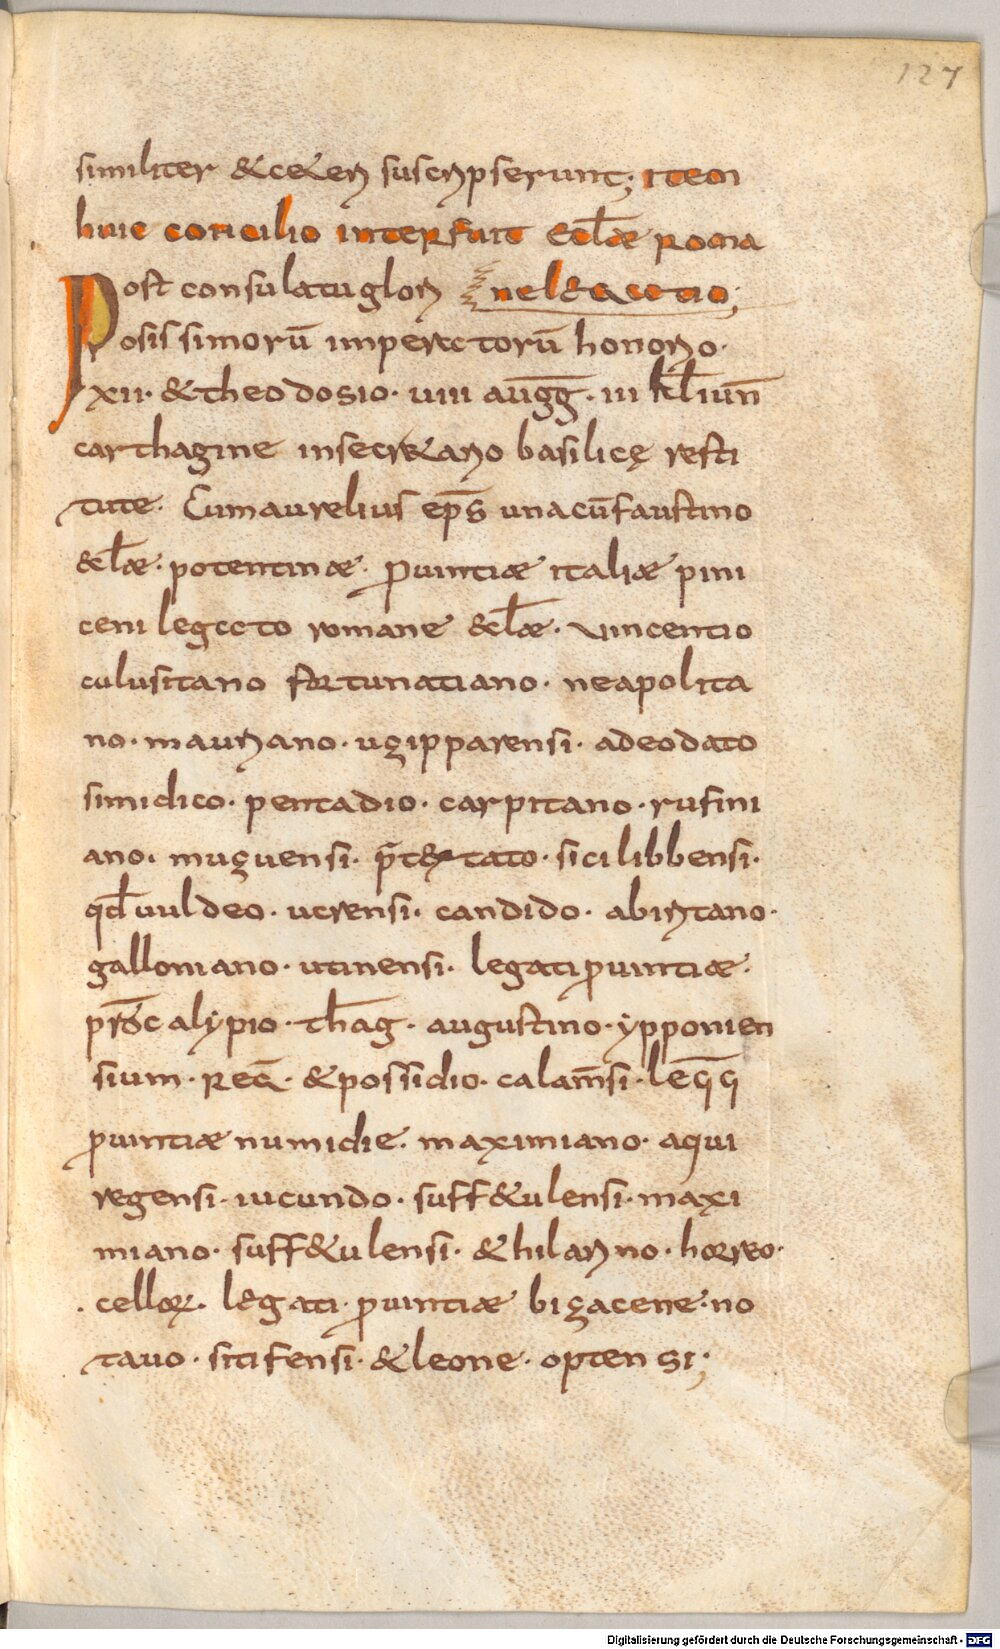 127
similiter & ceteri suscripserunt; item
huic concilio interfuit eclæ roma
Post consulatu glori nel& actio;
osissimorū imperatorū honorio·
xii· & theodosio· uiii aūgḡ· iii kl iuñ
carthagine insecretario basilicę resti
tute· Cum aurelius ep̄s una cū faustino
&clæ· potentinæ· prouintiæ italiæ pini
ceni legato romane &clæ· uincentio
culusitano fortunatiano· neapolita
no· mauriano· ugipparensi· adeodato
simidico· pentadio· carpitano· rufini
ano· muguensi· p̄t&xtato· sicilibbensi·
qđuuldeo· ucrensi· candido· abiritano·
galloniano· utinensi· legati prouintiæ·
p̄rōc alypio· thag· augustino· ypponien
sium· reḡ· & possidio· calam̄si· leḡḡ
prouintiæ numidie· maximiano· aqui
regensi· iucundo· suff&ulensi· maxi
miano· suff&ulensi· & hilarino· horreo·
cellor̄· legati· prouintiæ bigacene· no
tauo· sitifensi· & leone· optensi;
Digitalisierung gefördert durch die Deutsche Forschungsgemeinschaft - DFG